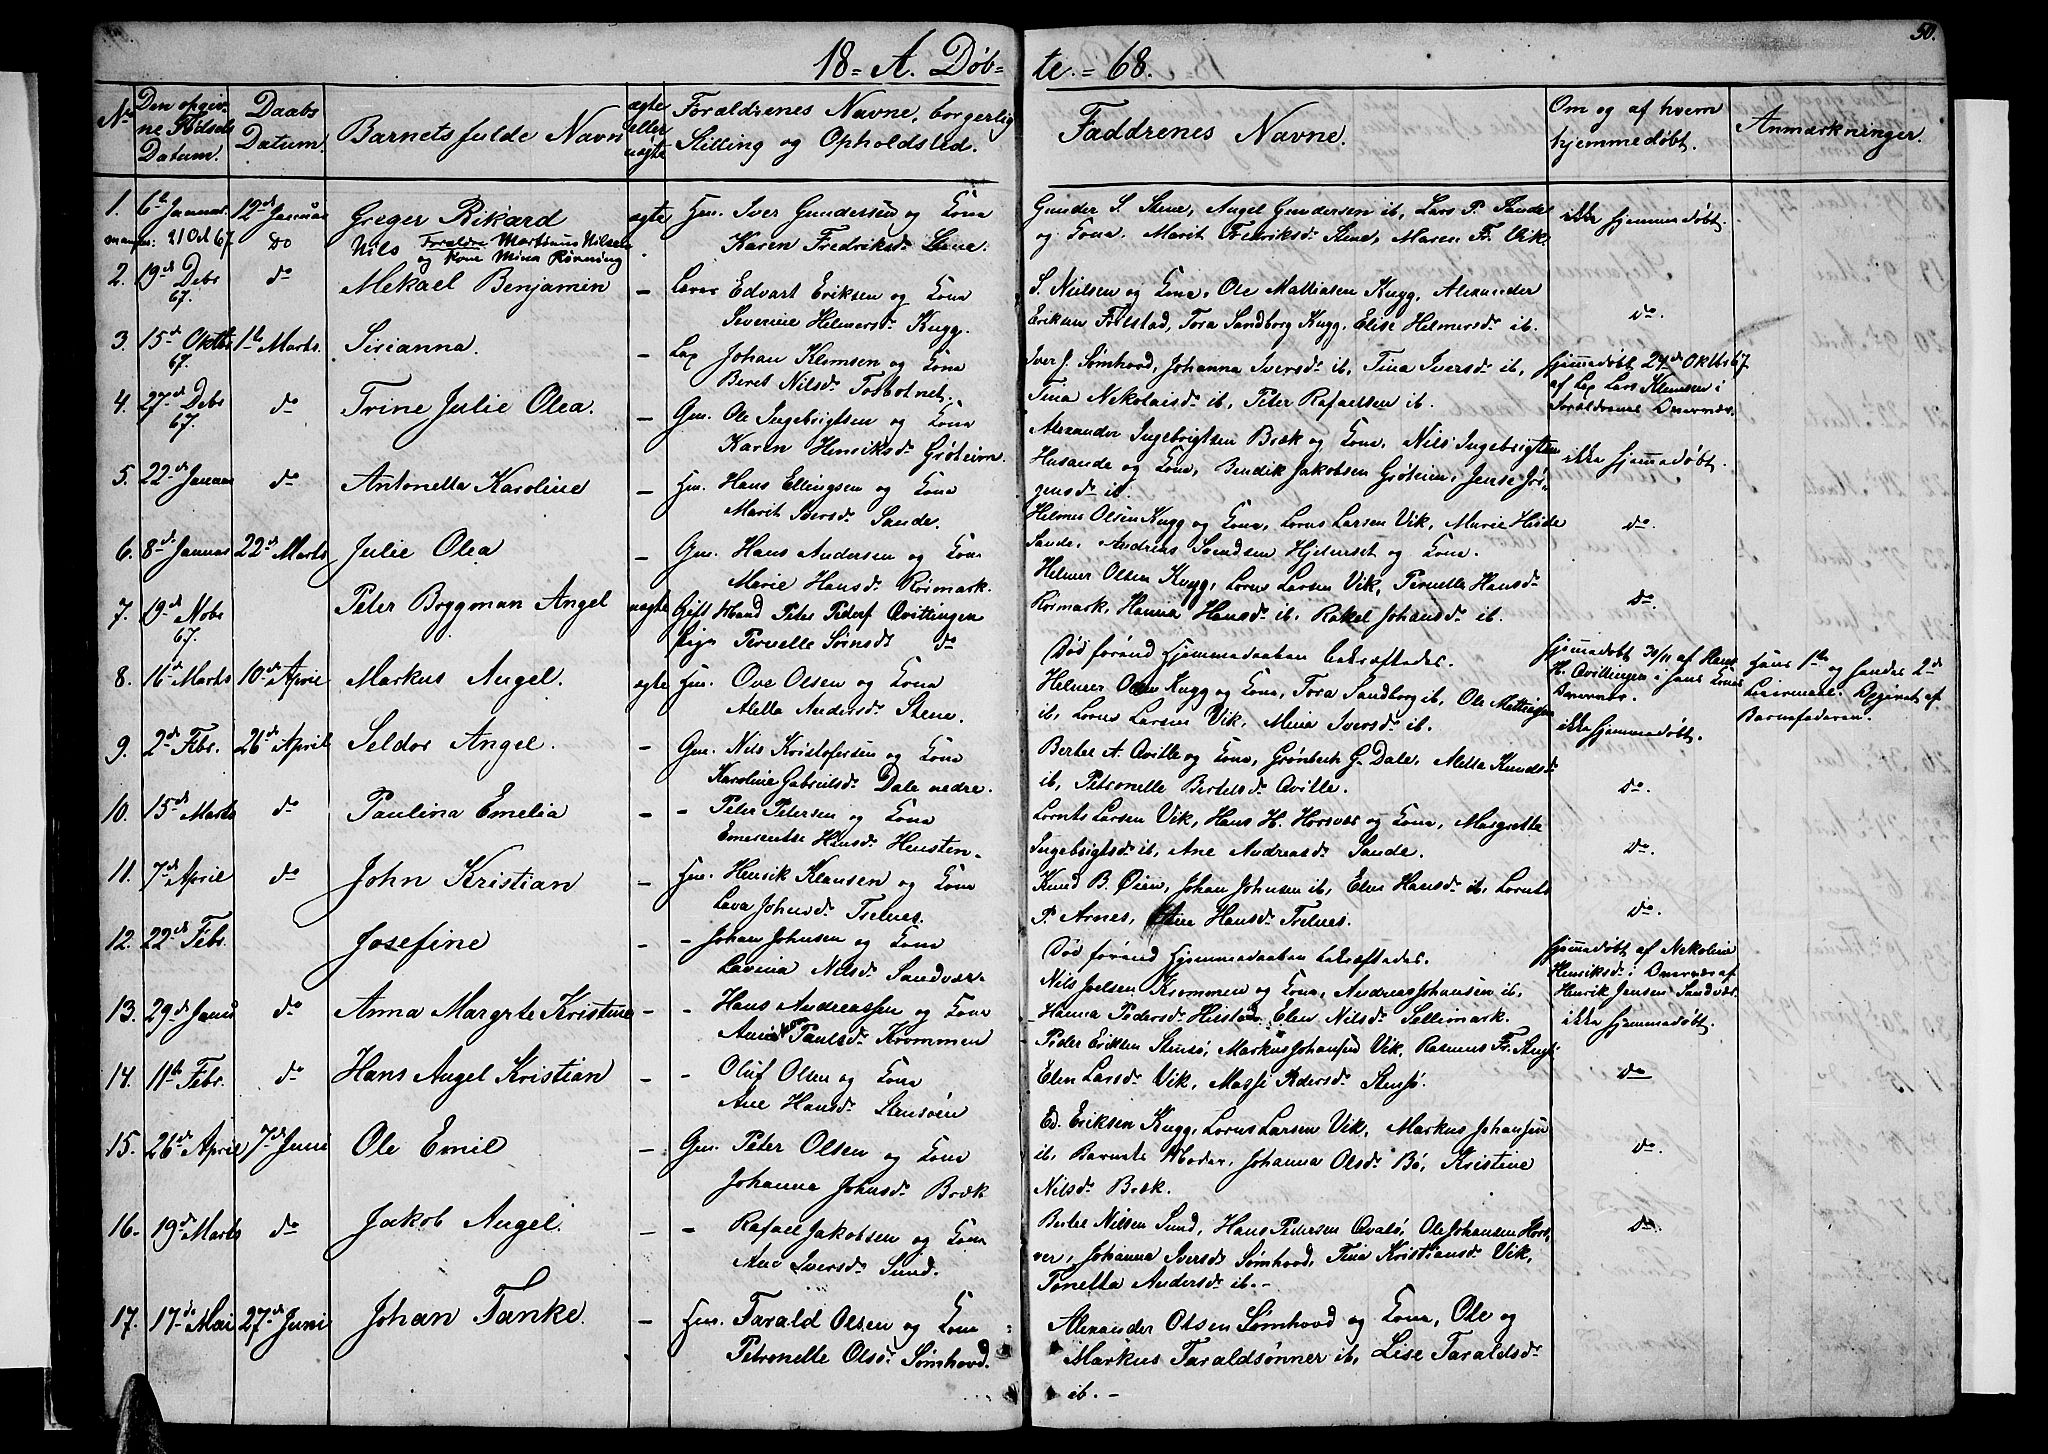 50.
18 = A. Døb= te. = 68.
No
Den opgiv-
ne Fødsels
Datum.
Daabs
Datum.
Barnets fulde Navn
ægte
eller
uægte
Forældrenes Navne, borgerlig
Stilling og Opholdsted.
Faddrenes Navne.
Om og af hvem
hjemmedøbt.
Anmærkninger.
1. 6te Januar 12te Januar Greger Rikard ægte Hm. Iver Gundersen og Kona
Karen Fredriksdr Stene.
Gunder S. Stene, Angel Gundersen ib, Lars P. Sande
og Kona. Marit Fredriksdr Stene, Maren Fr. Vik.
ikke hjemmedøbt.
mangler: 21 Oct 67. Do Nils Forældre Martinus Nilsen
og Kone Mina Rørming
2. 19de Debr
67. do Mekael Benjamin – Edvart Eriksen og Kona
Severine Helmersdr Kugg.
S. Nielsen og Kona, Ole Mattiasen Kugg, Alexander
Eriksen Fristad, Tora Sandborg Kugg, Elise Helmersdr ib.
do.
3. 15de Oktbr
67. 1te Marts. Sirianna. – Lap Johan Klemsen og Kona
Beret Nilsdr Tosbotnet.
Iver J. Sømhovd, Johanna Iversdr ib, Tina Iversdr ib,
Tina Nekolaisdr ib, Peter Rafaelsen ib.
hjemmedøbt 24de Oktbr 67.
af Lap Lars Klemsen i
Forældrenes Overvær.
4. 27de Debr
67. do Trine Julie Olea. – Gm. Ole Ingebrigtsen og Kona
Karen Henriksdr Grøteim.
Alexander Ingebrigtsen Bræk og Kona, Nils Ingebrigtsen
Husande og Kona, Bendik Jakobsen Grøteim, Jense Jør-
gensdr ib.
ikke hjemmedøbt.
5. 22de Januar do Antonetta Karoline – Hm. Hans Ellingsen og Kona
Marit Iversdr Sande.
Helmer Olsen Kugg og Kona, Lorns Larsen Vik, Marie
Sande, Andreas Svendsen Hjelmset og Kona.
do.
6. 8de Januar 22de Marts Julie Olea – Gm. Hans Andersen og Kona
Marie Hansdr Rørmark.
Helmer Olsen Kugg, Lorns Larsen Vik, Pernelle Hansdr
Rørmark, Hanna Hansdr ib, Rakel Johansdr ib.
do.
7. 19de Nobr
67. Peter Boggman Angel uægte Gift Mand Peter Peders Qvittingen
Pige Pernelle Sørnsdr do
Død førend Hjemmedaaben bekræftedes.
hjemmedøbt 30/11 af Hans
H. Qvittingen i hans Kones
Overvær.
Hans 1te og hendes 2de
Leiermaal. Opgivet af
Barnefaderen.
8. 16de Marts 10de April Markus Angel. ægte Hm. Ove Olsen og Kona
Aletta Andersdr Stene.
Helmer Olsen Kugg og Kona, Tora Sandborg ib, Ole Mattiasen
ib, Lorns Larsen Vik, Mina Iversdr ib.
ikke hjemmedøbt.
9. 2de Febr. 26de April Seldor Angel. – Gm. Nils Kristofersen og Kona
Karoline Gabrielsdr Dale nedre.
Bertel A. Qville og Kona, Grønbech G. Dale, Aletta Knudsdr
ib, Petronelle Bertelsdr Qville.
do.
10. 15de Marts do Paulina Emelia – – Peter Petersen og Kona
Emerentse Hansdr Hensten.
Lornts Larsen Vik, Hans H. Horsvær og Kona, Margrette
Ingebrigtsdr ib, Ane Andreasdr Sande.
do.
11. 7de April do John Kristian – Hm. Henrik Klausen og Kona
Lava Johnsdr Trelnes.
Knud B. Øien, Johan Johnsen ib, Elen Hansdr ib, Lornts
P. Arnes, Ane Hansdr Trelnes.
do.
12. 22de Febr. Josefine – – Johan Johnsen og Kona
Lavina Nilsdr Sandvær.
Død førend Hjemmedaaben bekræftedes.
hjemmedøbt af Nekoline
Henriksdr i Overvær af
Henrik Jensen Sandvær.
13. 29de Janu do Anna Margrte Kristine – – Hans Andreassen og Kona
Paulsdr Krommen
Nils Joelsen Krommen og Kona, Andreas Johansen ib,
Hanna Pedersdr Hilstad, Elen Nilsdr Sellimark.
ikke hjemmedøbt.
14. 11te Febr. do Hans Angel Kristian – – Oluf Olsen og Kona
Ane Hansdr Stensøen
Peder Eriksen Stensø, Markus Johansen Vik, Rasmus Fr.
Elen Larsdr Vik, Masse Pedersdr Stensø.
do
15. 26de April 7de Juni Ole Emil – Gm. Peter Olsen og Kona
Johanna Johnsdr Bræk
Ed. Eriksen Kugg, Lorns Larsen Vik, Markus Johansen
ib, Barnets Moder, Johanna Olsdr Bø, Kristine
Nilsdr Bræk.
do.
16. 19de Marts do Jakob Angel. – – Rafael Jakobsen og Kona
Ane Iversdr Sund.
Bertel Nilsen Sund, Hans Petersen Qvalø, Ole Johansen Hors-
vær, Johanna Iversdr Sømhovd, Tina Kristiansdr Vik,
Tonetta Andersdr ib. –
do.
17. 17de Mai 27de Juni Johan Tanke. – Hm. Tarald Olsen og Kona
Petronelle Olsdr Sømhovd.
Alexander Olsen Sømhovd og Kona, Ole og
Markus Taraldsønner ib, Lise Taraldsdr
ib. –